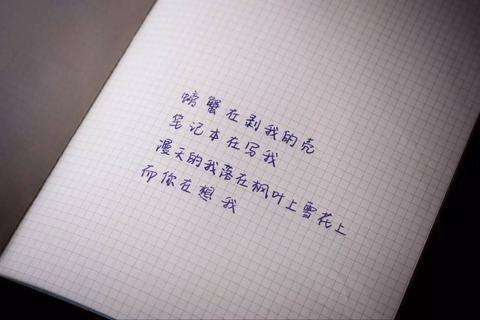 螃蟹在剥我的壳
笔记本在写我
漫天的我落在枫叶上雪花上
而你在想我